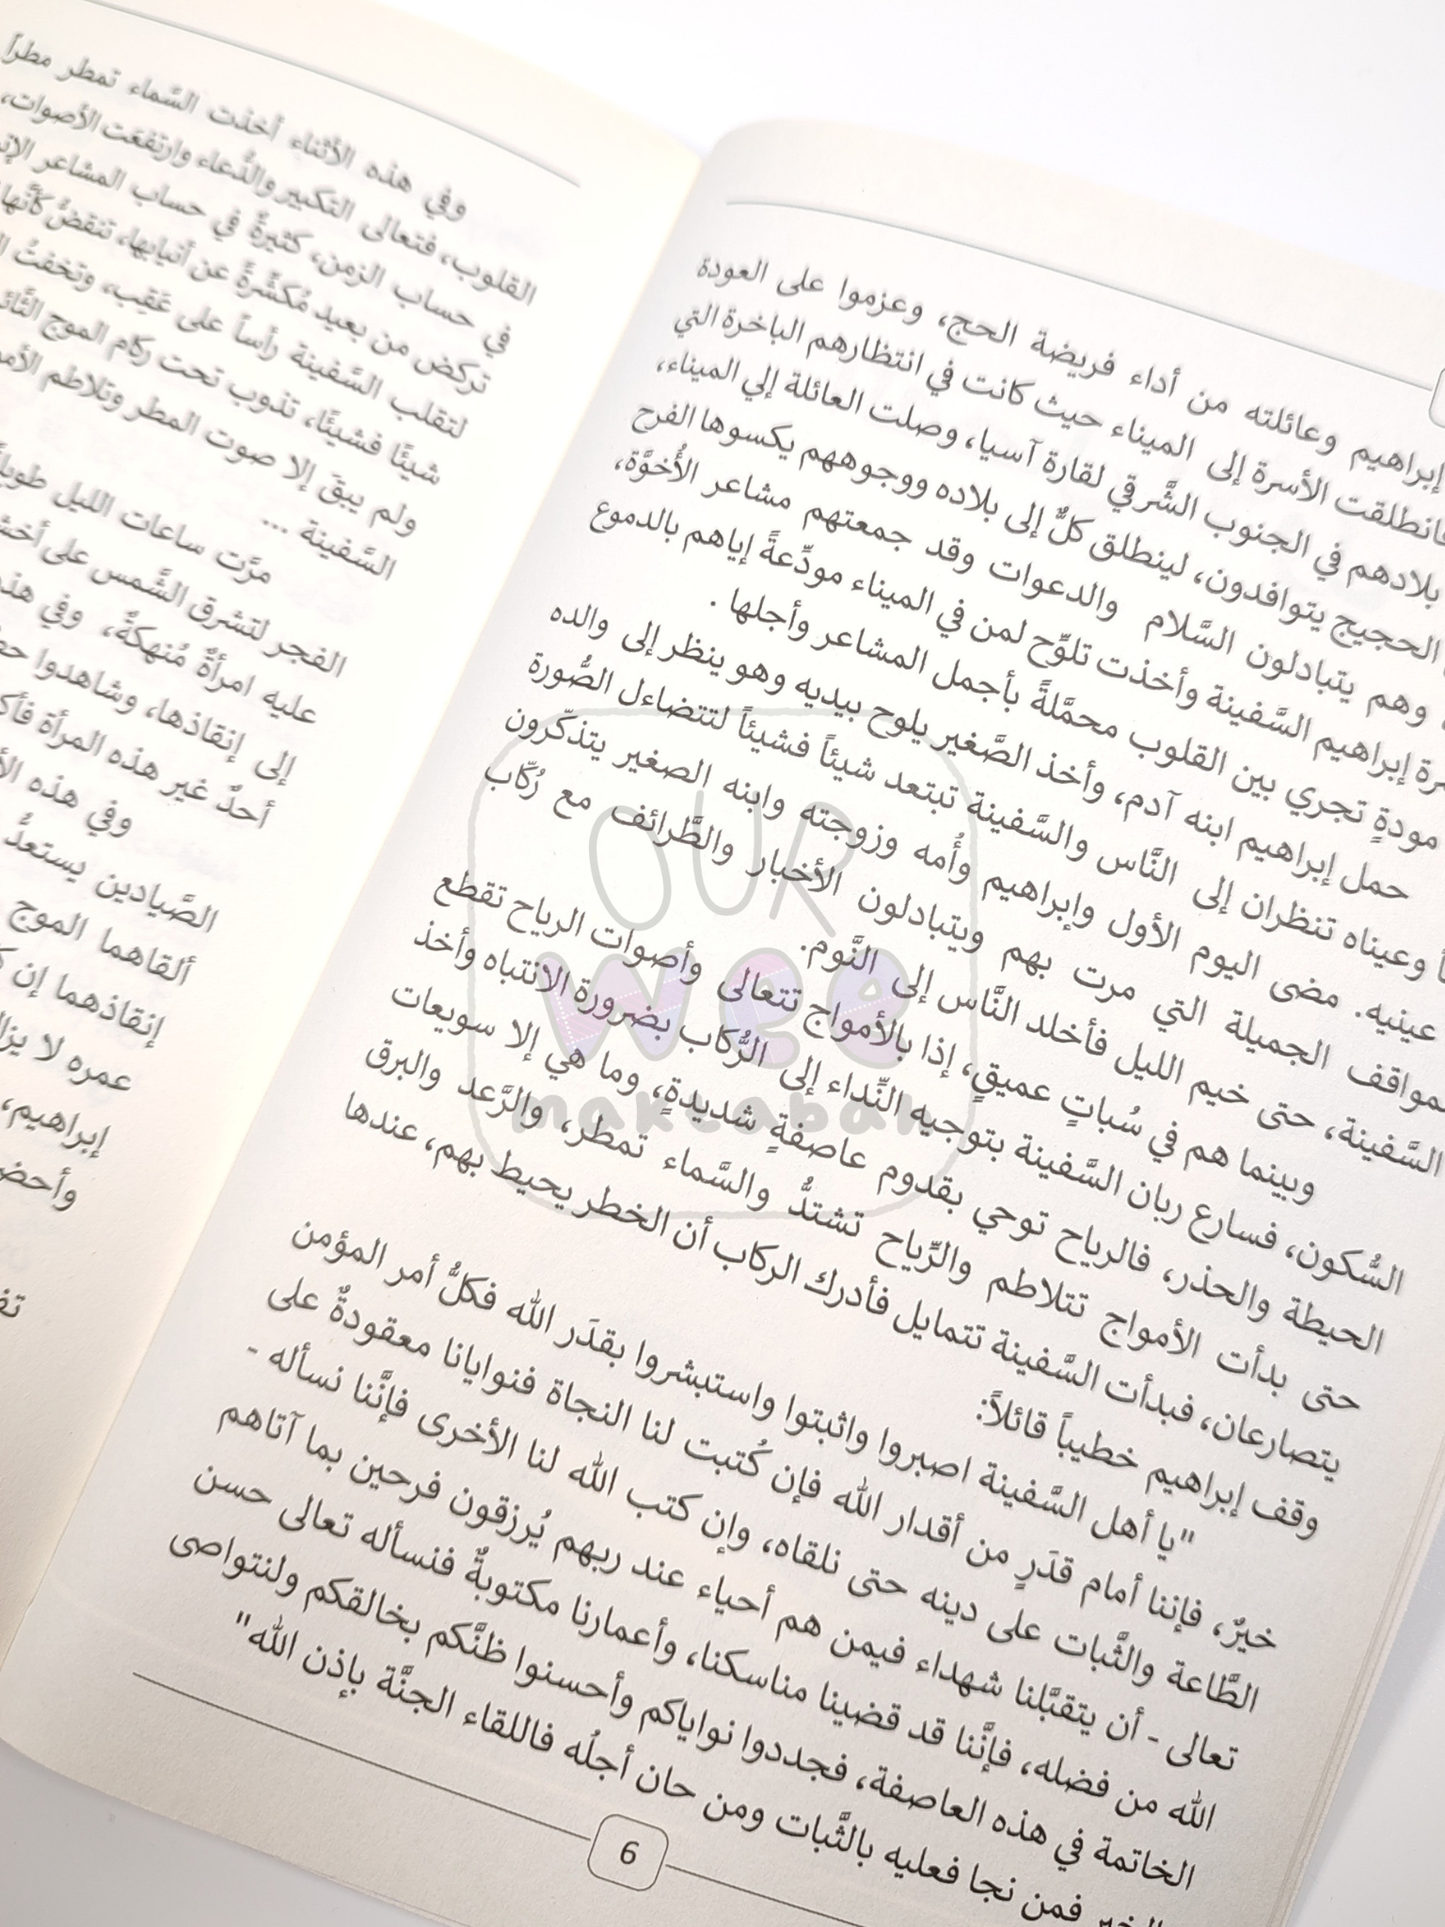 إبراهيم وعائلته من أداء فريضة الحج، وعزموا على العودة
فانطلقت الأسرة إلى الميناء حيث كانت في انتظارهم الباخرة التي
بلادهم في الجنوب الشَّرقي لقارة آسيا، وصلت العائلة إلي الميناء،
الحجيج يتوافدون، لينطلق كلٌّ إلى بلاده ووجوههم يكسوها الفرح
وهم يتبادلون السَّلام والدعوات وقد جمعتهم مشاعر الأُخوَّة،
إبراهيم السَّفينة وأخذت تلوِّح لمن في الميناء مودِّعةً إياهم بالدموع
مودةٍ تجري بين القلوب محمَّلةً بأجمل المشاعر وأجلها .
حمل إبراهيم ابنه آدم، وأخذ الصَّغير يلوح بيديه وهو ينظر إلى والده
وعيناه تنظران إلى النَّاس والسَّفينة تبتعد شيئاً فشيئاً لتتضاءل الصُّورة
عينيه. مضى اليوم الأول وإبراهيم وأُمه وزوجته وابنه الصغير يتذكّرون
المواقف الجميلة التي مرت بهم ويتبادلون الأخبار والطَّرائف مع رُكّاب
السَّفينة، حتى خيم الليل فأخلد النَّاس إلى النَّوم.
وبينما هم في سُباتٍ عميقٍ، إذا بالأمواج تتعالى وأصوات الرياح تقطع
السُّكون، فسارع ربان السَّفينة بتوجيه النِّداء إلى الرُّكاب بضرورة الانتباه وأخذ
الحيطة والحذر، فالرياح توحي بقدوم عاصفةٍ شديدةٍ، وما هي إلا سويعات
حتى بدأت الأمواج تتلاطم والرِّياح تشتدُّ والسَّماء تمطر، والرَّعد والبرق
يتصارعان، فبدأت السَّفينة تتمايل فأدرك الركاب أن الخطر يحيط بهم، عندها
وقف إبراهيم خطيباً قائلاً:
"يا أهل السَّفينة اصبروا واثبتوا واستبشروا بقدَر الله فكلُّ أمر المؤمن
خيرٌ، فإننا أمام قدَرٍ من أقدار الله فإن كُتبت لنا النجاة فنوايانا معقودةٌ على
الطَّاعة والثَّبات على دينه حتى نلقاه، وإن كتب الله لنا الأخرى فإنَّنا نسأله -
تعالى - أن يتقبَّلنا شهداء فيمن هم أحياء عند ربهم يُرزقون فرحين بما آتاهم
الله من فضله، فإنَّنا قد قضينا مناسكنا، وأعمارنا مكتوبةٌ فنسأله تعالى حسن
الخاتمة في هذه العاصفة، فجددوا نواياكم وأحسنوا ظنَّكم بخالقكم ولنتواصى
فمن نجا فعليه بالثَّبات ومن حان أجلُه فاللقاء الجنَّة بإذن الله"
6
وفي هذه الأثناء أخذت السَّماء تمطر مطراً
القلوب، فتعالى التكبير والدُّعاء وارتفعَت الأصوات،
في حساب الزمن، كثيرةٌ في حساب المشاعر
تركض من بعيد مُكشِّرةً عن أنيابها، تنقضُّ كأنَّها
لتقلب السَّفينة رأساً على عَقِب، وتخفتُ
شيئًا فشيئًا، تذوب تحت ركام الموج الثَّائر
ولم يبقَ إلا صوت المطر وتلاطم
السَّفينة ...
مرَّت ساعات الليل طويلةً
الفجر لتشرق الشَّمس على
عليه امرأةٌ مُنهكةٌ، وفي هذه
إلى إنقاذها، وشاهدوا
أحدٌ غير هذه المرأة
وفي هذه
الصَّيادين يستعدُّ
ألقاهما الموج
إنقاذهما إن
عمره لا يزال
إبراهيم،
OUR
wee
maktabah